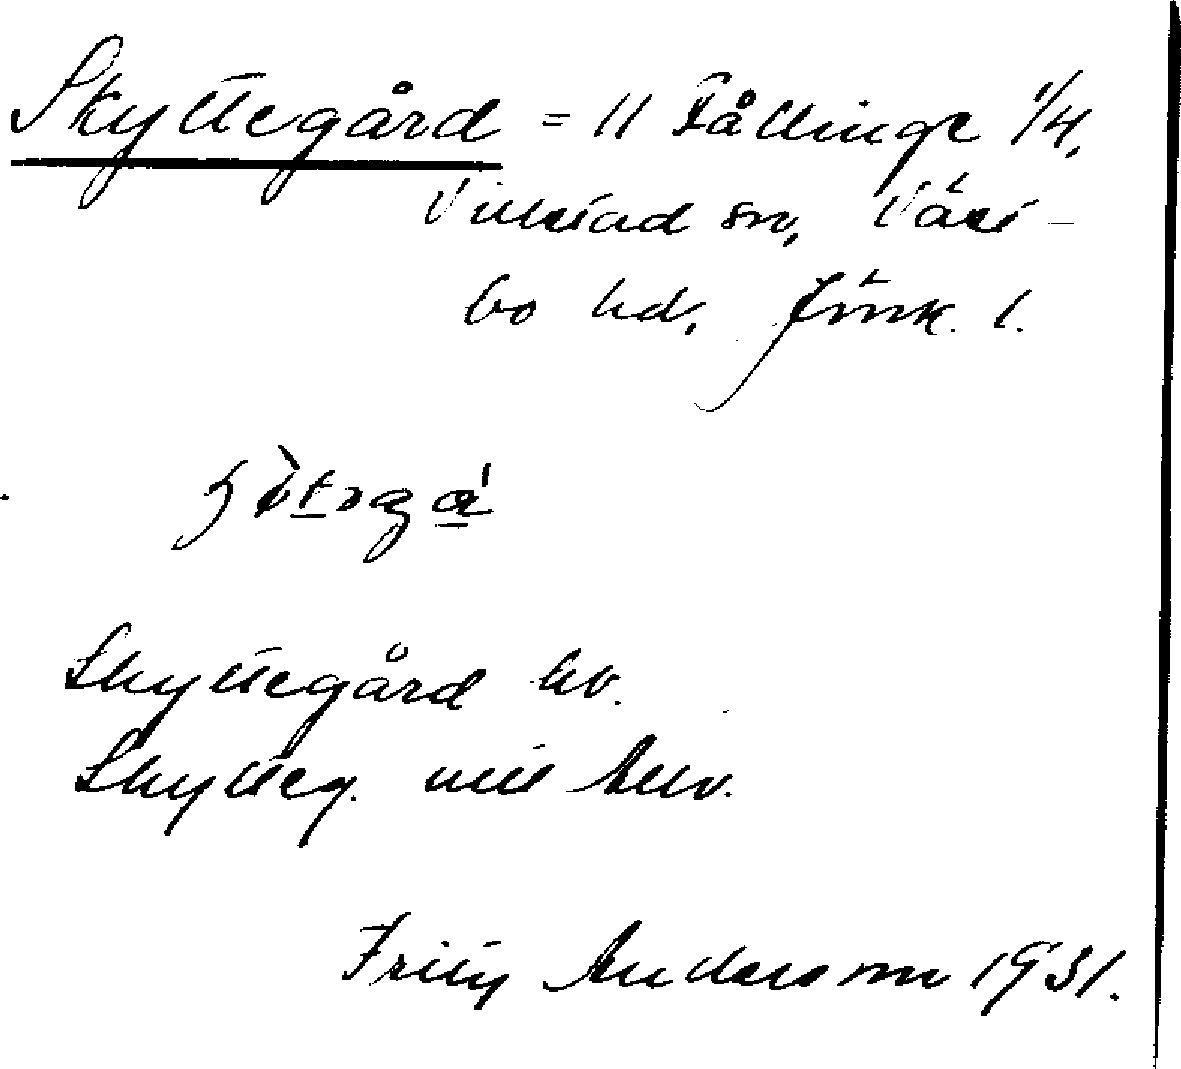 Skyttegård = 11 Fållinge 1/4,
Villstad sn, Väst-
bo hd, Jönk. l.
Skyttegård hv.
Skytteg.
Fritiof Andersson 1931.